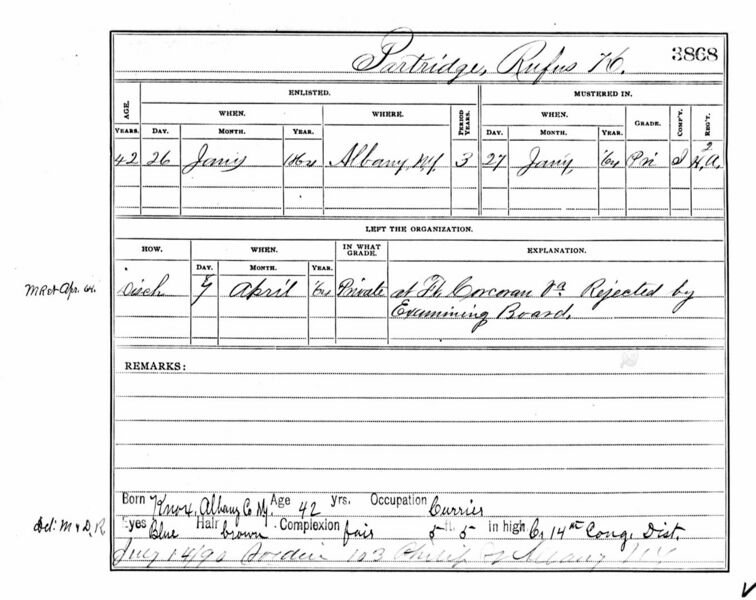 Partridge, Rufus H. 3868
ENLISTED. MUSTERED IN.
AGE. WHEN. WHERE. PERIOD YEARS. WHEN. GRADE. COMP'Y. REG'T.
YEARS. DAY. MONTH. YEAR. DAY. MONTH. YEAR.
42 26 Jany Albany NY 3 27 Jany Pri 2 H.A.
LEFT THE ORGANIZATION.
HOW. WHEN. IN WHAT GRADE. EXPLANATION.
DAY. MONTH. YEAR.
MR at Apr. 64. Disch 7 April Private at Ft. Corcoran Va Rejected by
Examining Board.
REMARKS:
Born Knox, Albany Co Ny. Age 42 yrs. Occupation Currier
Del: M & D. R. Eyes Blue Hair brown Complexion fair 5 ft. 5 in high Cr 14th Cong. Dist.
July 14/90 103 Philip Albany NY